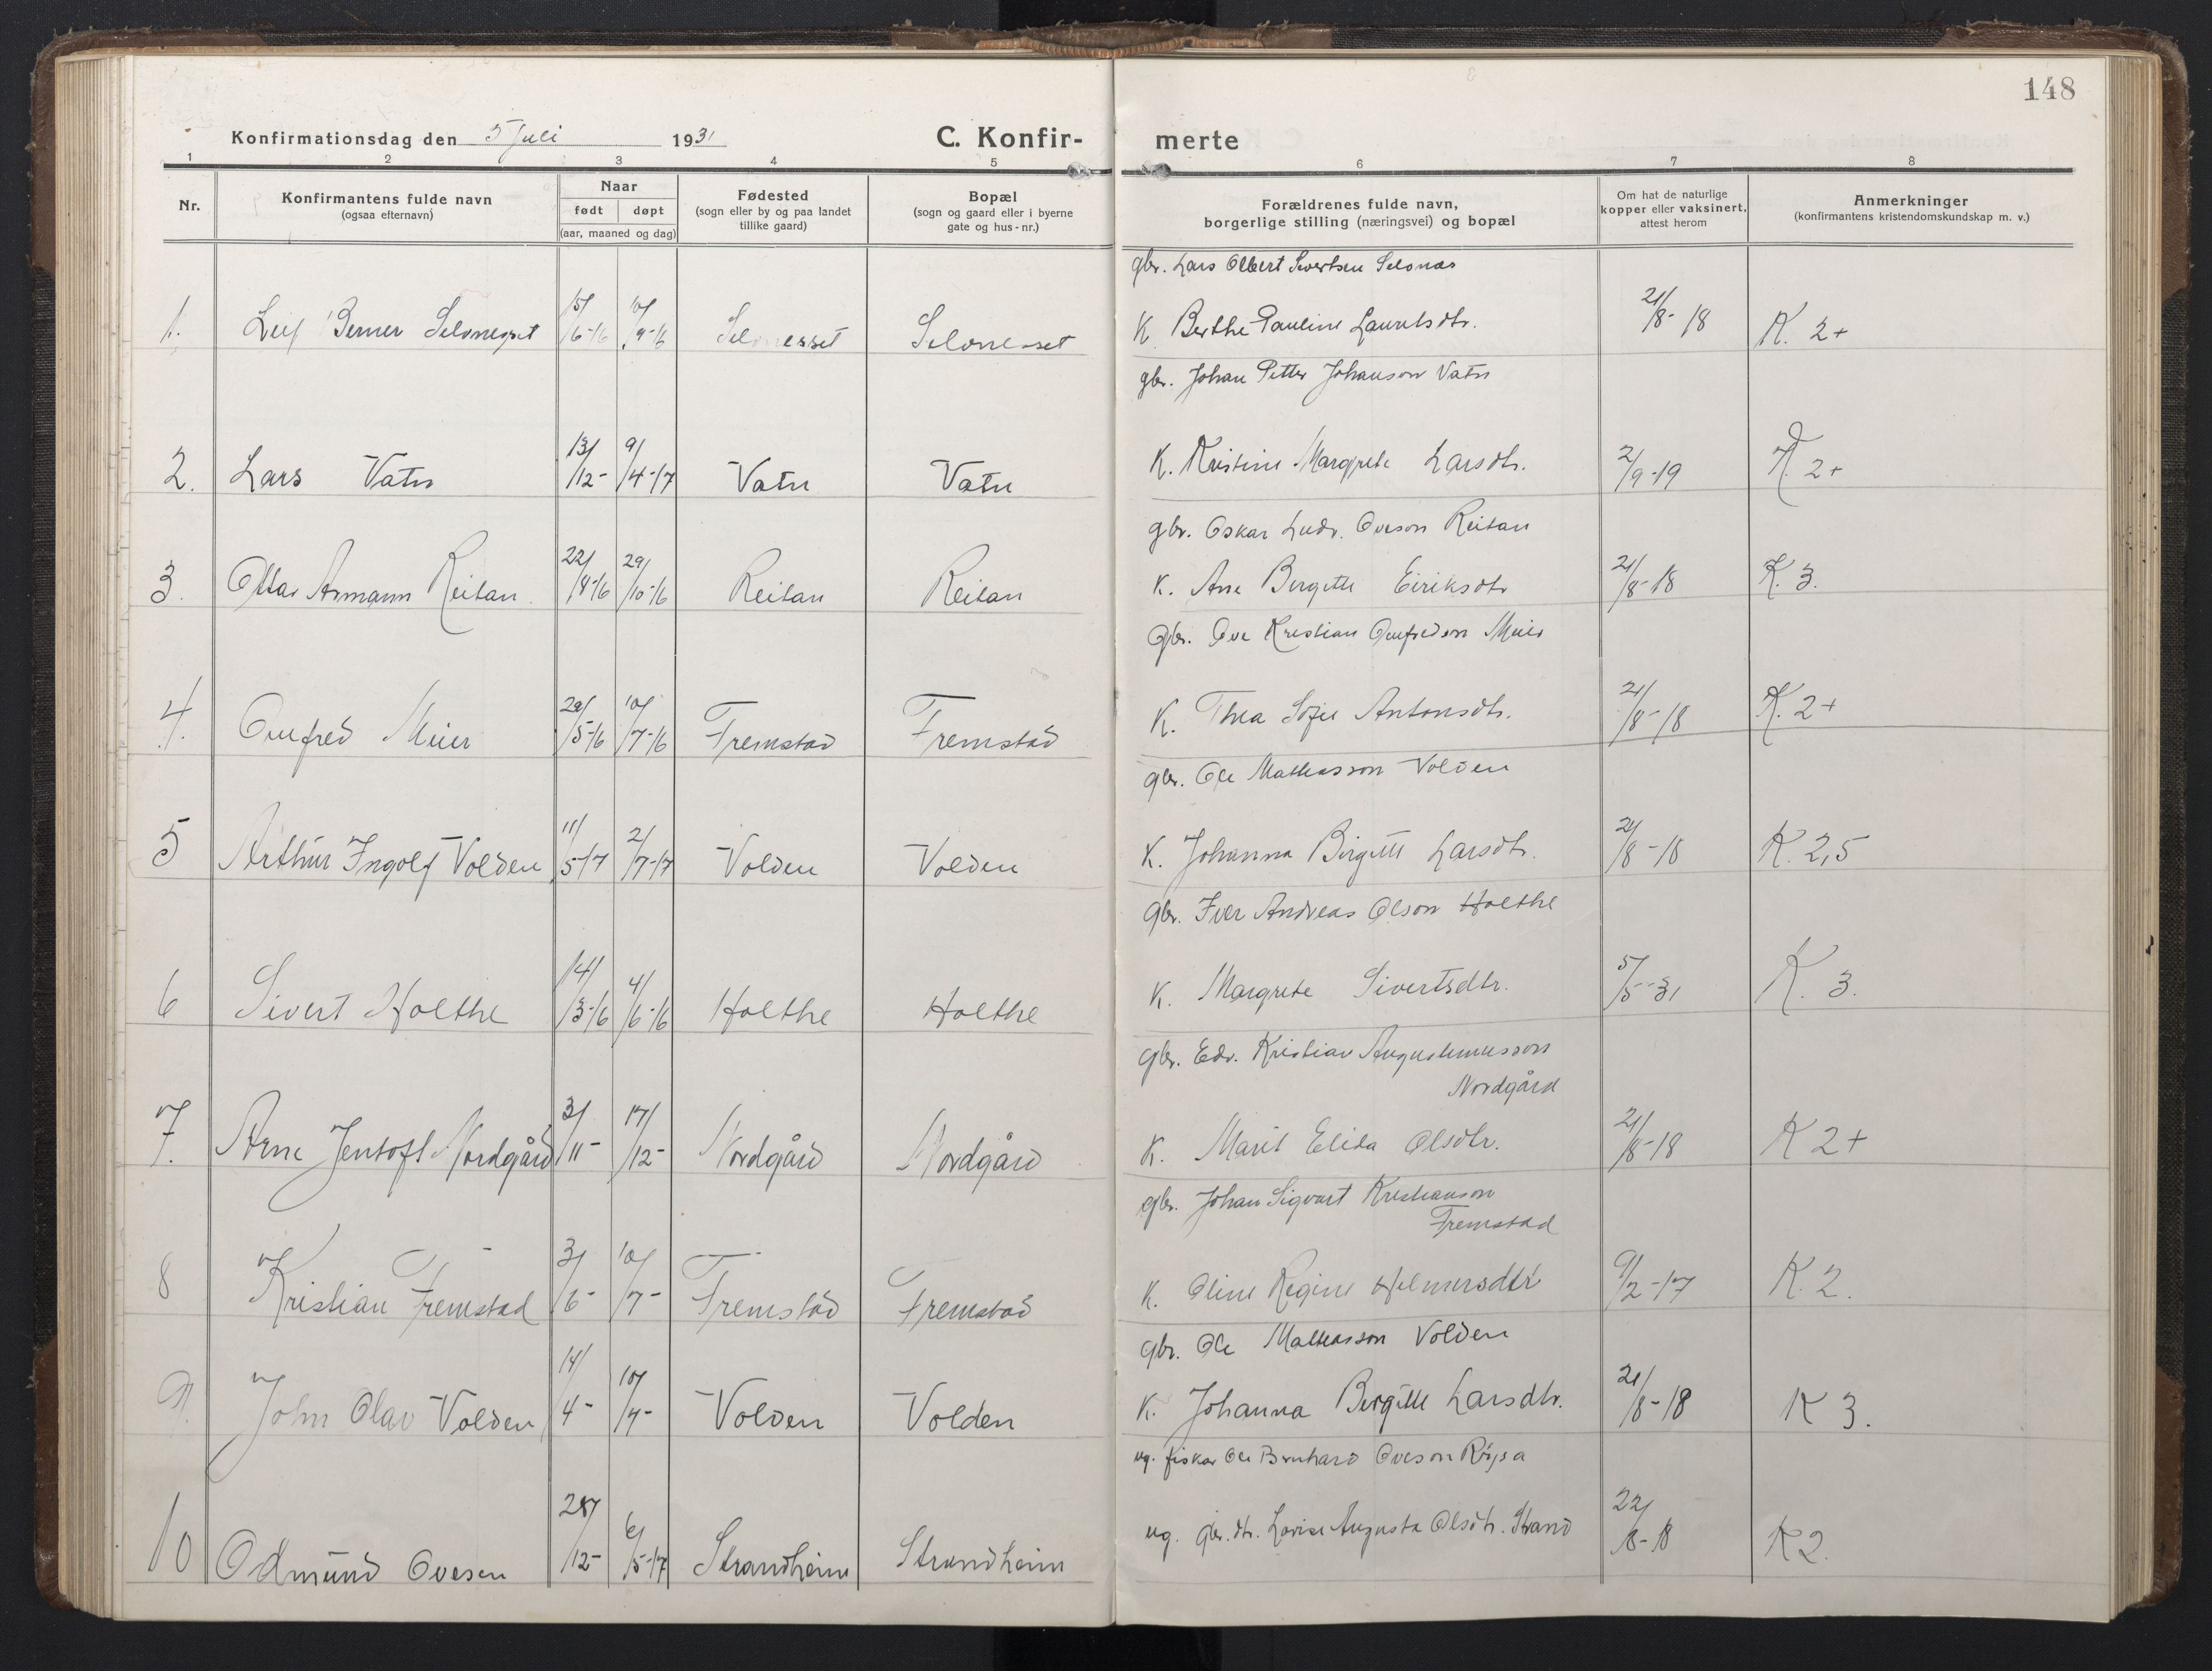 148
Konfirmationsdag den 5 Juli 1931 C. Konfir- merte
1 2 3 4 5 6 7 8
Nr. Konfirmantens fulde navn (ogsaa efternavn) Naar født døpt (aar, maaned og dag) Fødested (sogn eller by og paa landet tillike gaard) Bopæl (sogn og gaard eller i byerne gate og hus-nr.) Forældrenes fulde navn, borgerlige stilling (næringsvei) og bopæl Om hat de naturlige kopper eller vaksinert, attest herom Anmerkninger (konfirmantens kristendomskundskap m. v.)
gbr. Lars Olbert Sivertsen Selvnes
1. Leif Berner Selvnesset 15/6-16 10/9-16 Selvnesset Selvnesset K. Berthe Pauline Lauritsdtr. 21/8-18 K. 2+
gbr. Johan Petter Johanson Vatn
2. Lars Vatn 13/12- 9/4-17 Vatn Vatn K. Kristine Margrete Larsdtr. 2/9-19 K. 2+
gbr. Oskar Ludv. Oveson Reitan
3. Ottar Armann Reitan. 22/8-16 29/10-16 Reitan Reitan K. Ane Bergitte Eiriksdtr 21/8-18 K. 3.
Gbr. Ove Kristian Onufredson Meier
4. Onufred Meier 29/5-16 10/7-16 Fremstad Fremstad K. Thea Sofie Antonsdtr. 21/8-18 K. 2+
gbr. Ole Matheasson Volden
5 Arthur Ingolf Volden 11/5-17 2/7-17 Volden Volden K. Johanna Birgitte Larsdtr. 21/8-18 K. 2,5
gbr. Iver Andreas Olson Holthe
6 Sivert Holthe 14/3-16 4/6-16 Holthe Holthe K. Margrete Sivertsdtr. 5/5-31 K. 3.
gbr. Edv. Kristian Augustinusson
Nordgård
7. Arne Jentoft Nordgård 3/11- 17/12- Nordgård Nordgård K. Marit Elida Olsdtr. 21/8-18 K 2+
gbr. Johan Sigvart Kristianson
Fremstad
8 Kristian Fremstad 3/6- 10/7- Fremstad Fremstad K. Oline Regine Helmersdtr 9/2-17 K. 2.
gbr. Ole Matheasson Volden
9. John Olav Volden 14/4- 10/7- Volden Volden K. Johanna Birgitte Larsdtr. 21/8-18 K 3.
ug. fiskar Ole Bernhard Oveson Röysa
10 Odmund Ovesen 28/12- 6/5-17 Strandheim Strandheim ug. gbr. dtr. Lovise Augusta Olsdtr. Strand 22/8-18 K 2.